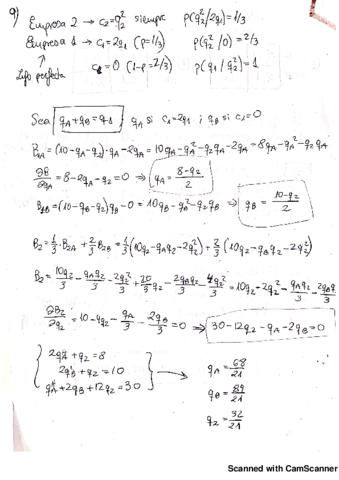 9) Empresa 2 → c₂ = q₂² siempre p(q₂²/2q₁) = 1/3
Empresa 1 → c₁ = 2q₁ (p = 1/3) p(q₂²/0) = 2/3
c₁ = 0 (1-p = 2/3) p(q₁/q₂²) = 1
Info perfecta
Sea q_A + q_B = q₁ q_A si c₁ = 2q₁ ; q_B si c₁ = 0
B₁A = (10 - q_A - q₂) · q_A - 2q_A = 10q_A - q_A² - q₂q_A - 2q_A = 8q_A - q_A² - q₂q_A
∂B/∂q_A = 8 - 2q_A - q₂ = 0 ⇒ q_A = (8 - q₂)/2
B₁B = (10 - q_B - q₂) q_B - 0 = 10q_B - q_B² - q₂q_B ⇒ q_B = (10 - q₂)/2
B₂ = 1/3 · B₂A + 2/3 B₂B = 1/3 (10q₂ - q_Aq₂ - 2q₂²) + 2/3 (10q₂ - q_Bq₂ - 2q₂²)
B₂ = 10q₂/3 - q_Aq₂/3 - 2q₂²/3 + 20/3 q₂ - 2q_Bq₂/3 - 4q₂²/3 = 10q₂ - 2q₂² - q_Aq₂/3 - 2q_Bq₂/3
∂B₂/∂q₂ = 10 - 4q₂ - q_A/3 - 2q_B/3 = 0 ⇒ 30 - 12q₂ - q_A - 2q_B = 0
2q_A + q₂ = 8
2q_B + q₂ = 10
q_A + 2q_B + 12q₂ = 30
→ q_A = 68/21
q_B = 89/21
q₂ = 32/21
Scanned with CamScanner